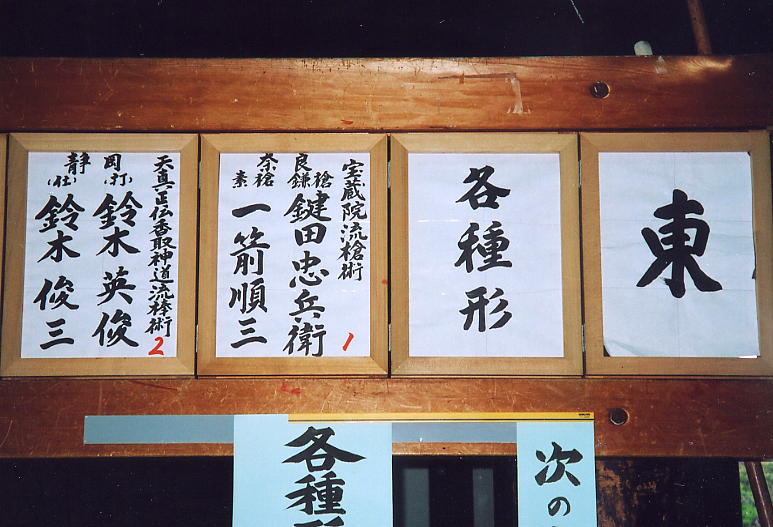 東
各種形
宝蔵院流槍術
良 鎌槍 鍵田忠兵衛
奈 素槍 一箭順三
1
天真正伝香取神道流棒術
岡 (打) 鈴木英俊
静 (仕) 鈴木俊三
2
次の
各種形